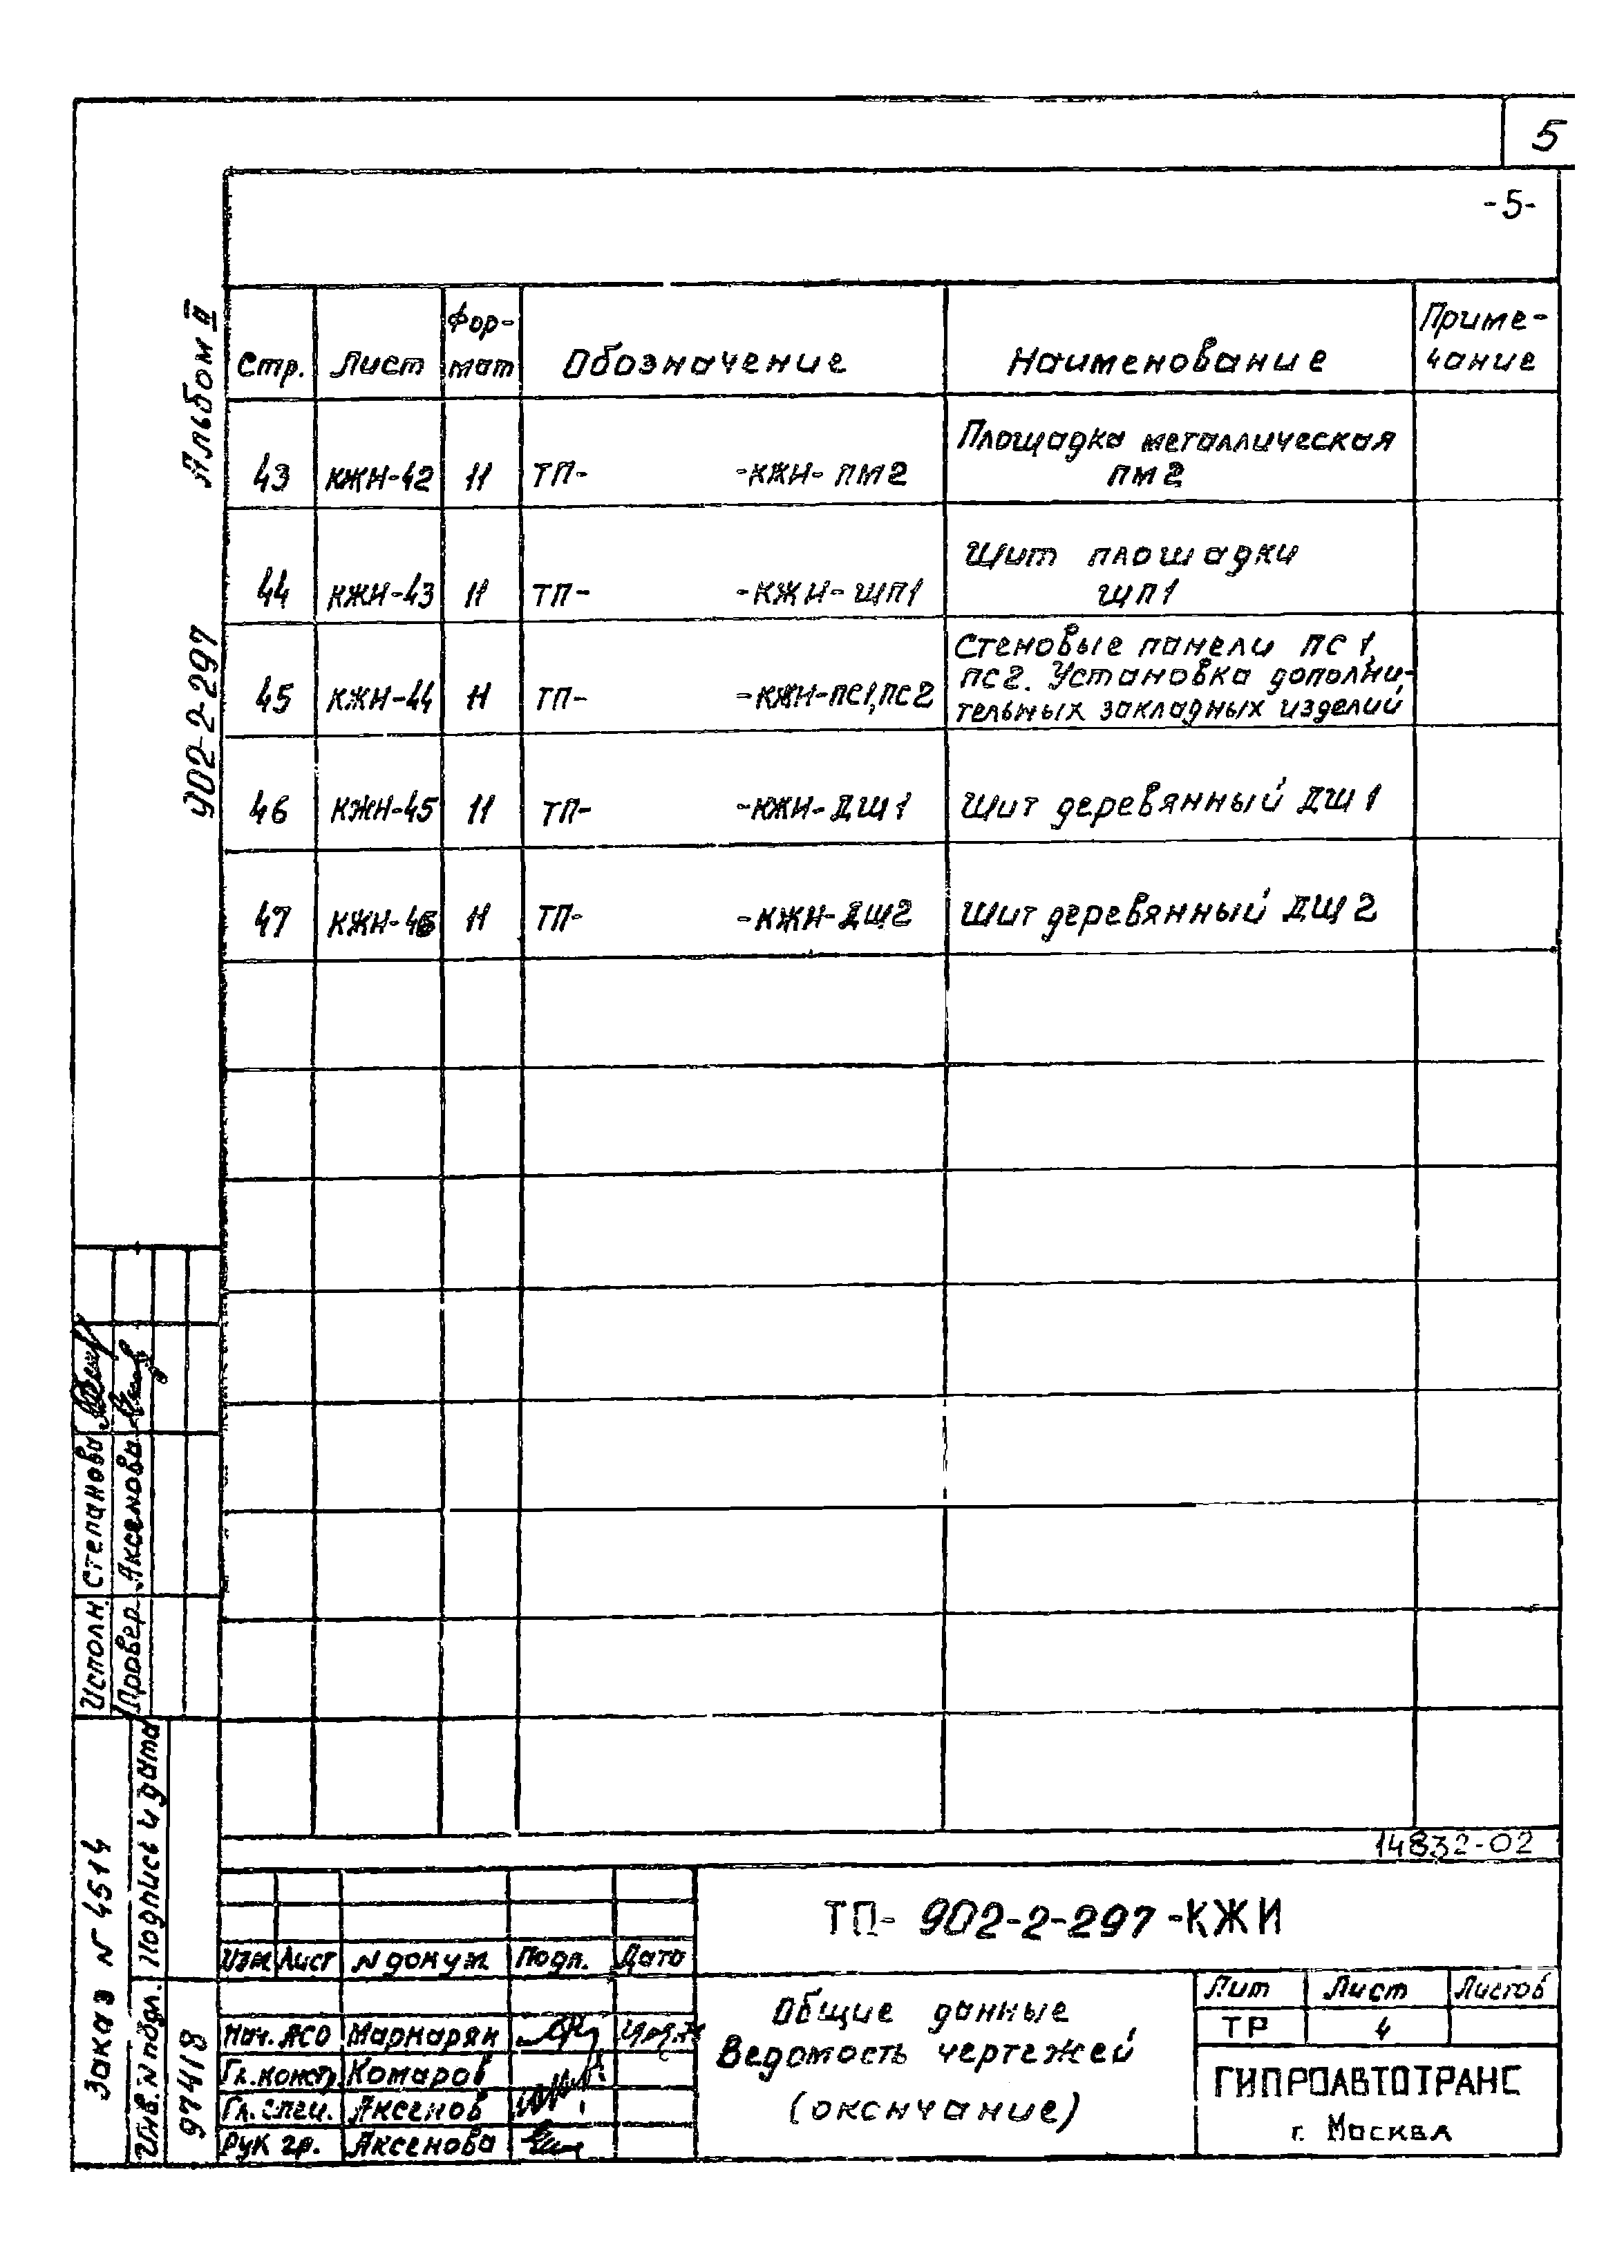 5
-5-
Альбом II
902-2-297
Стр. Лист Фор-мат Обозначение Наименование Приме-чание
43 КЖИ-42 11 ТП- -КЖИ-ПМ2 Площадка металлическая
ПМ2
44 КЖИ-43 11 ТП- -КЖИ-ЩП1 Щит площадки
ЩП1
45 КЖИ-44 11 ТП- -КЖИ-ПС1,ПС2 Стеновые панели ПС1,
ПС2. Установка дополни-
тельных закладных изделий
46 КЖИ-45 11 ТП- -КЖИ-ДЩ1 Щит деревянный ДЩ1
47 КЖИ-46 11 ТП- -КЖИ-ДЩ2 Щит деревянный ДЩ2
Исполн. Степанова
Провер. Аксенова
Заказ N 4514
Инв. N подл. Подпись и дата
97418
14832-02
ТП- 902-2-297-КЖИ
Изм Лист N докум Подп. Дата
Нач. АСО Маркарян
Гл. констр. Комаров
Гл. спец. Аксенов
Рук гр. Аксенова
Общие данные
Ведомость чертежей
(окончание)
Лит Лист Листов
ТР 4
ГИПРОАВТОТРАНС
г. Москва